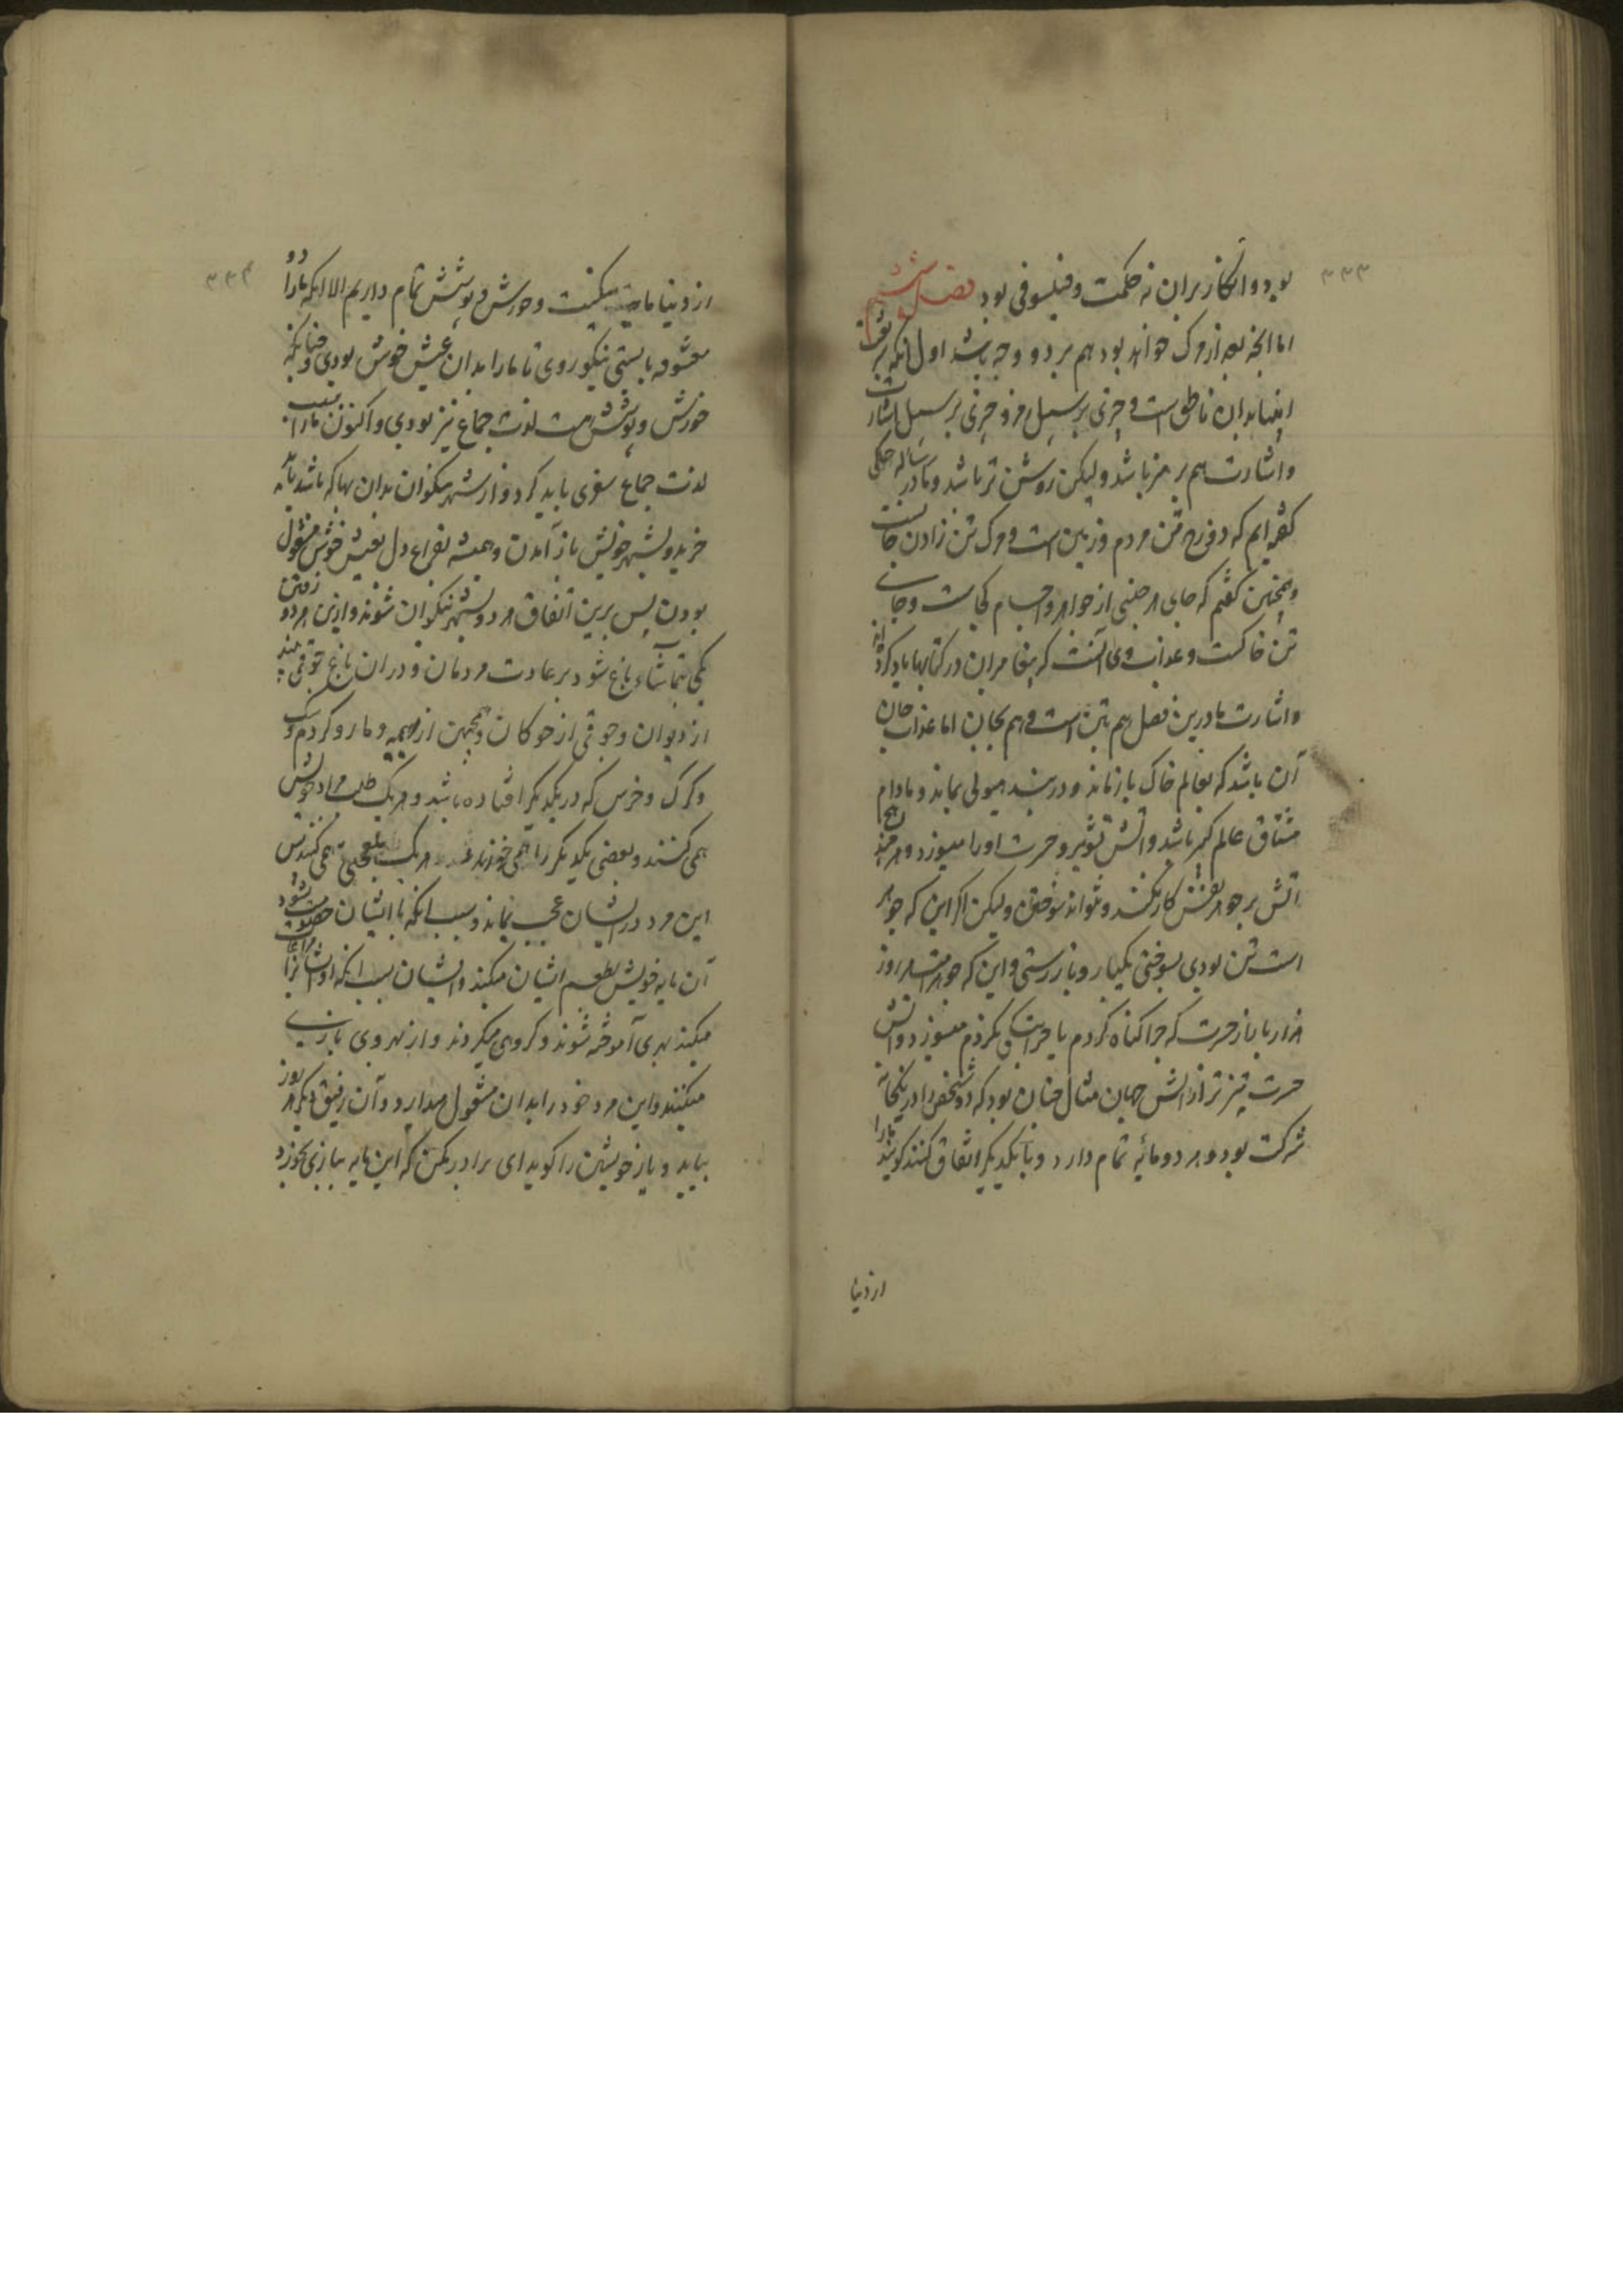 ۳۳۳
بود و انکار بران نه حکمت و فیلسوفی بود فصل ششم
اما انچه بعد از مرک خواهد بود هم بر دو وجه باشد اول آنکه
انبیا بدان ناطق است و چیزی بر سبیل رمز و چیزی بر سبیل اشارت
و اشارت هم رمز باشد ولیکن روشن تر باشد و ما در رساله
کفته ایم که دوزخ تن مردم زمین است و مرک تن زادن جانست
و همچنین کفتیم که جای هر جنسی از جواهر و اجسام کجاست و جای
تن خاکست و عذاب وی آنست که پیغامبران در کتابها یاد کرده اند
و اشارت ما درین فصل هم بتن است و هم بجان اما عذاب جان
آن باشد که بعالم خاک باز ماند و در بند هیولی بماند و مادام
مشتاق عالم کهر باشد و آتش تشویر و حسرت او را میسوزد و هر چند
اتش بر جوهر نفس کار نکند و نتواند سوختن ولیکن اکر این که جوهر
است تن بودی بسوختی یکبار و باز رستی و این که جوهر است هر روز
هزار بار باز حسرت که چرا کناه کردم یا چرا نیکی نکردم میسوزد و اتش
حسرت تیز تر از اتش جهان مثال چنان بود که دو شخص را در یکخانه
شرکت بود و هر دو مائیه تمام دارد و با یکدیکر اتفاق کنند کویند ما را
از دنیا
۳۳۴
از دنیا مایه میکنت و خورش و پوشش تمام داریم الا انکه ما را
معشوقه بایستی نیکو روی تا ما را بدان عیش خوش بودی و چنانکه
خورش و پوشش هست لذت جماع نیز بودی و اکنون ما را
لذت جماع سفری باید کرد و از شهر نیکوان بدان بها که باشد
خرید و بشهر خویش باز آمدن و همیشه بفراغ دل بعیش خوش مشغول
بودن پس برین اتفاق هر دو بشهر نیکوان شوند و ازین هر دو رفتن
یکی بتماشاء باغ شود بر عادت مردمان و در ان باغ جوقی
از دیوان و جوقی از خوکان و همچنین از بهیمه و مار و کژدم و سک
و کرک و خرس که در یکدیکر افتاده باشد و هر یک طلب مراد خویش
همی کنند و بعضی یکدیکر را همی خورند و هر یک بلعجبی همی کنند پس
این مرد در ایشان عجب بماند و بسبب انکه با ایشان
آن مایه خویش بطعم ایشان میکند و ایشان بسبب انکه او
میکند بوی آموخته شوند و کرد وی میکردند و از بهر وی بازی
میکنند و این مرد خود را بدان مشغول میدارد و آن رفیق دیکر هر روز
بیاید و یار خویشتن را کوید ای برادر مکن که این مایه ببازی بخورد